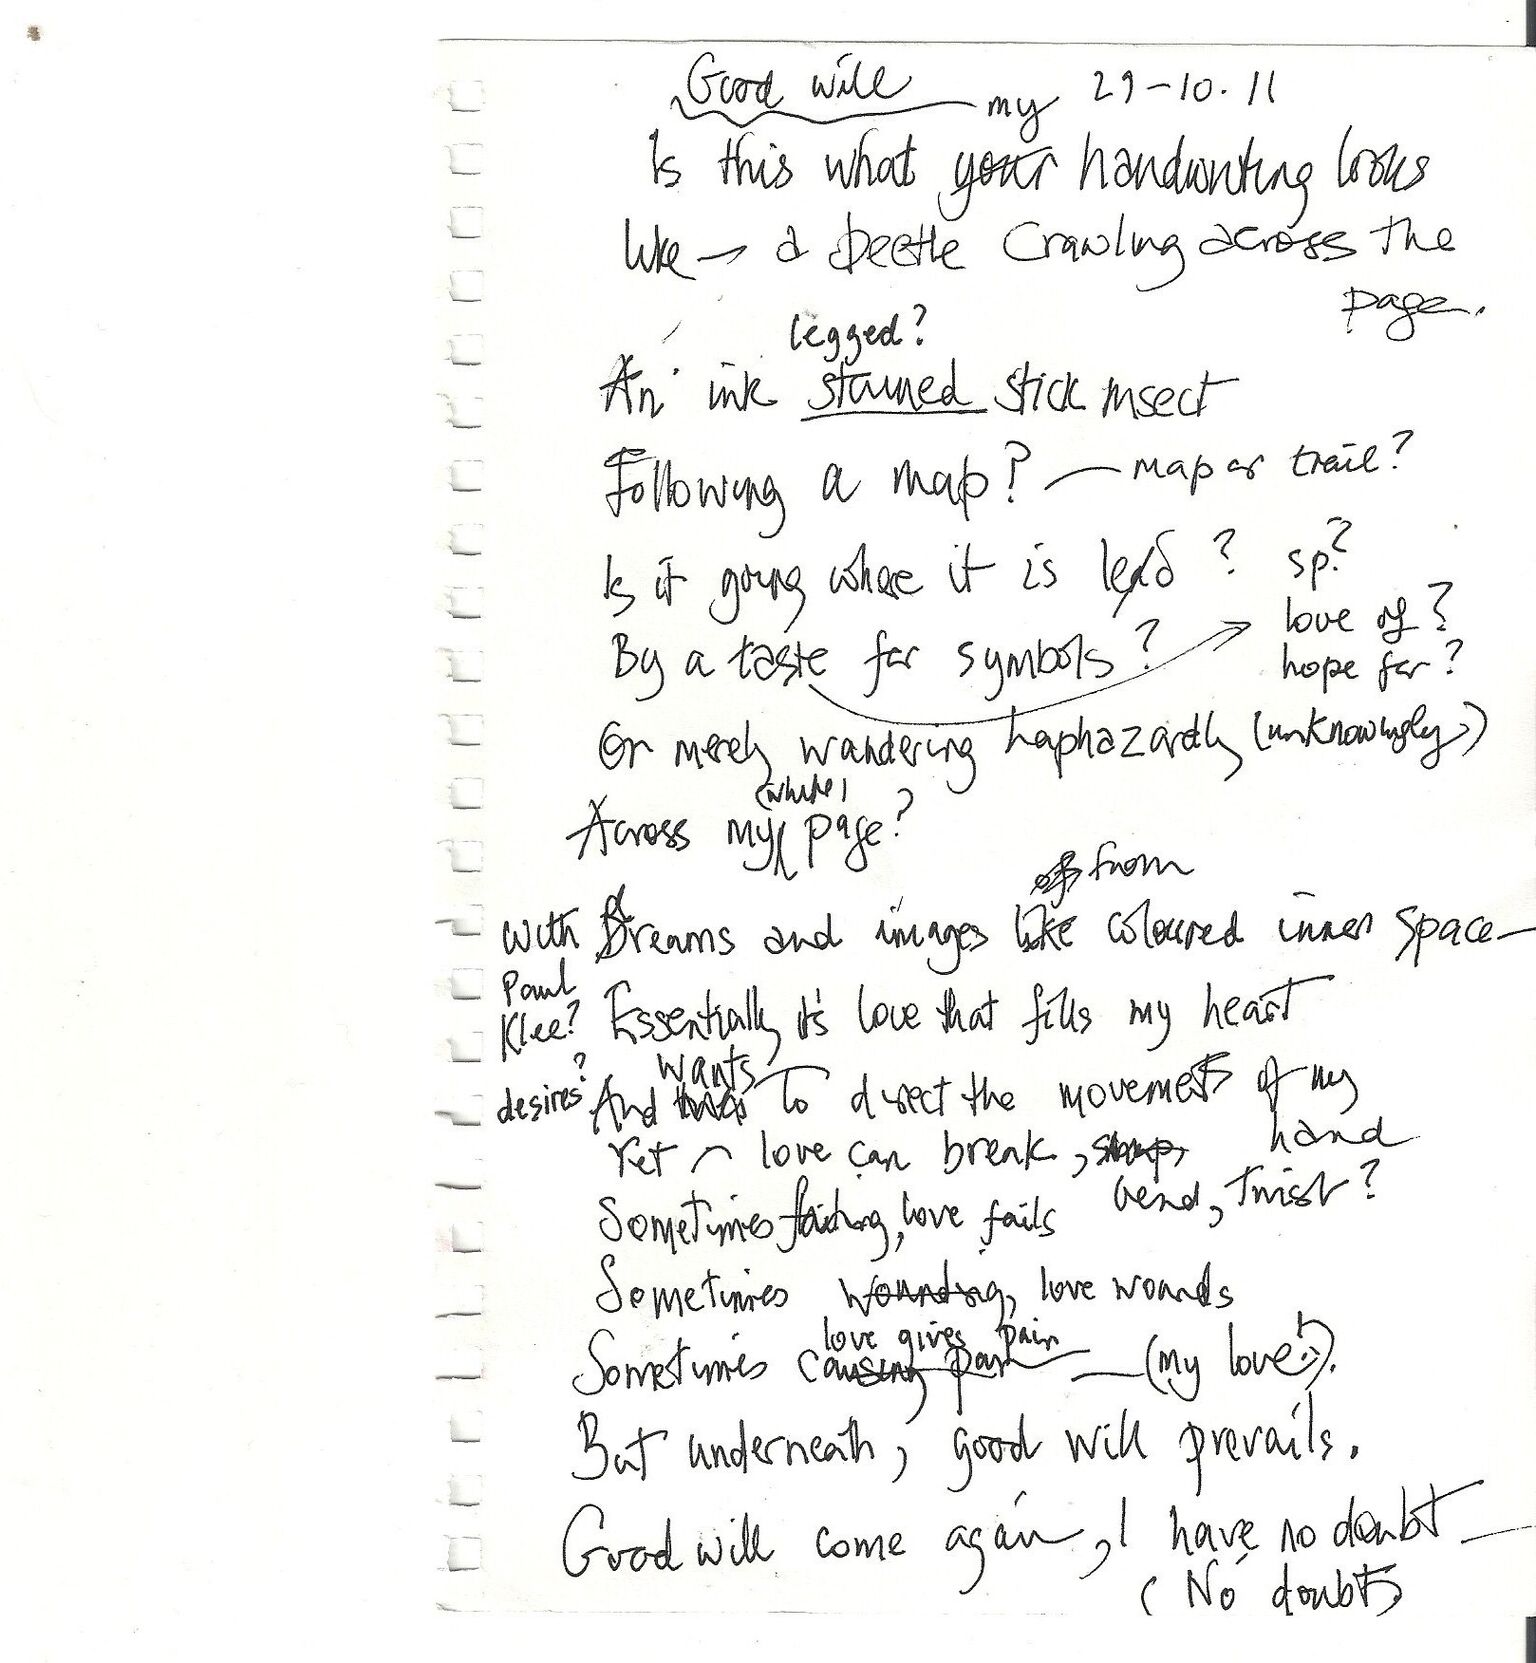 Good will
my 29-10.11
Is this what your handwriting looks
like → a beetle crawling across the
page.
legged?
An ink stained stick insect
Following a map? — map or trail?
Is it going where it is lead ? sp?
love of?
By a taste for symbols?
hope for?
Or merely wandering haphazardly (unknowingly?)
(white)
Across my page?
of from
With Dreams and images like coloured inner space —
Paul
Klee? Essentially it's love that fills my heart
wants
desires? And to direct the movements of my
hand
Yet love can break, snap,
bend, twist?
Sometimes failing, love fails
Sometimes wounding, love wounds
love gives pain
Sometimes causing pain — (my love!).
But underneath, good will prevails.
Good will come again, I have no doubt —
(No doubt)